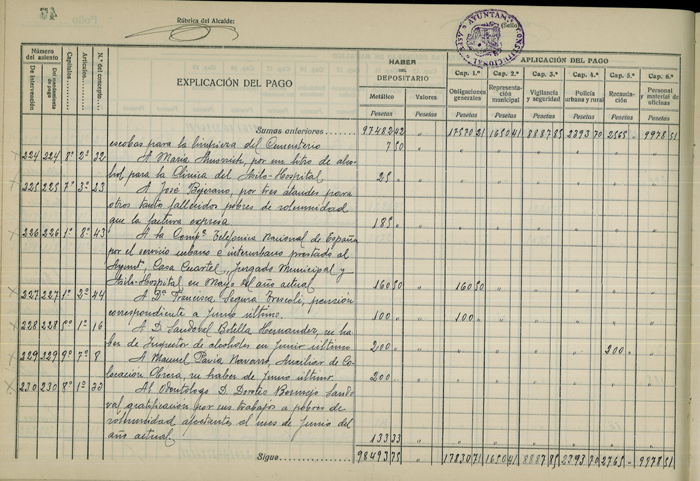 Rúbrica del Alcalde:
AYUNTAMIENTO CONSTITUCIONAL
(Sello)
Número del asiento
De intervención
Del mandamiento de pago
Capítulos
Artículos
N.º del concepto
EXPLICACIÓN DEL PAGO
HABER DEL DEPOSITARIO
Metálico
Valores
Pesetas
Pesetas
APLICACIÓN DEL PAGO
Cap. 1.º Cap. 2.º Cap. 3.º Cap. 4.º Cap. 5.º Cap. 6.º
Obligaciones generales
Representación municipal
Vigilancia y seguridad
Policía urbana y rural
Recaudación
Personal y material de oficinas
Pesetas Pesetas Pesetas Pesetas Pesetas Pesetas
Sumas anteriores 97482 42 " 17570 21 16504 1 8887 85 2393 70 2565 " 9978 51
escobas para la limpieza del Cementerio 7 50
224 224 8º 2º 32 A María, por un litro de alco-
hol para la Clínica del Asilo-Hospital 25 "
225 225 7º 3º 23 A José Bejerano, por tres ataudes para
otros tanto fallecidos pobres de solemnidad
que la factura expresa 185 "
226 226 1º 8º 43 A la Compª Telefónica Nacional de España
por el servicio urbano e interurbano prestado al
Aymtº, Casa Cuartel, Juzgado Municipal y
Asilo-Hospital en Mayo del año actual 160 50 160 50
227 227 1º 2º 44 A Dª Francisca Segura, pensión
correspondiente a Junio último. 100 " 100 "
228 228 5º 1º 16 A D. Sandoval Botella Hernandez, su ha-
ber de Inspector de alcoholes en Junio último 200 " 200 "
229 229 9º 7º 8 A Manuel Pavía Navarro, Auxiliar de Co-
locación Obrera, su haber de Junio último. 200 "
230 230 8º 1º 33 Al Odontólogo D. Doroteo Bermejo Sando-
val gratificación por sus trabajos a pobres de
solemnidad afectantes al mes de Junio del
año actual 133 33
Sigue 98493 75 " 17830 71 16504 1 8887 85 2393 70 2765 " 9978 51